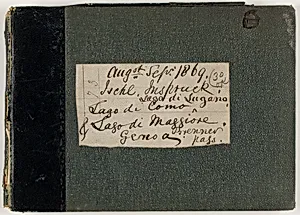 Augst Sepr 1869.
Ischl, Inspruck,
Lago di Lugano,
Lago di Como,
& Lago di Maggiore.
Genoa Brenner
pass.